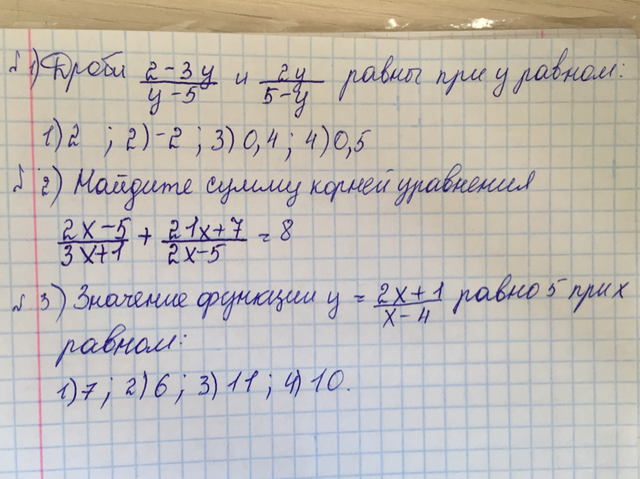 № 1) Дроби (2-3y)/(y-5) и (2y)/(5-y) равны при y равном:
1) 2 ; 2) -2 ; 3) 0,4 ; 4) 0,5
№ 2) Найдите сумму корней уравнения
(2x-5)/(3x+1) + (21x+7)/(2x-5) = 8
№ 3) Значение функции y = (2x+1)/(x-4) равно 5 при x
равном:
1) 7 ; 2) 6 ; 3) 11 ; 4) 10.